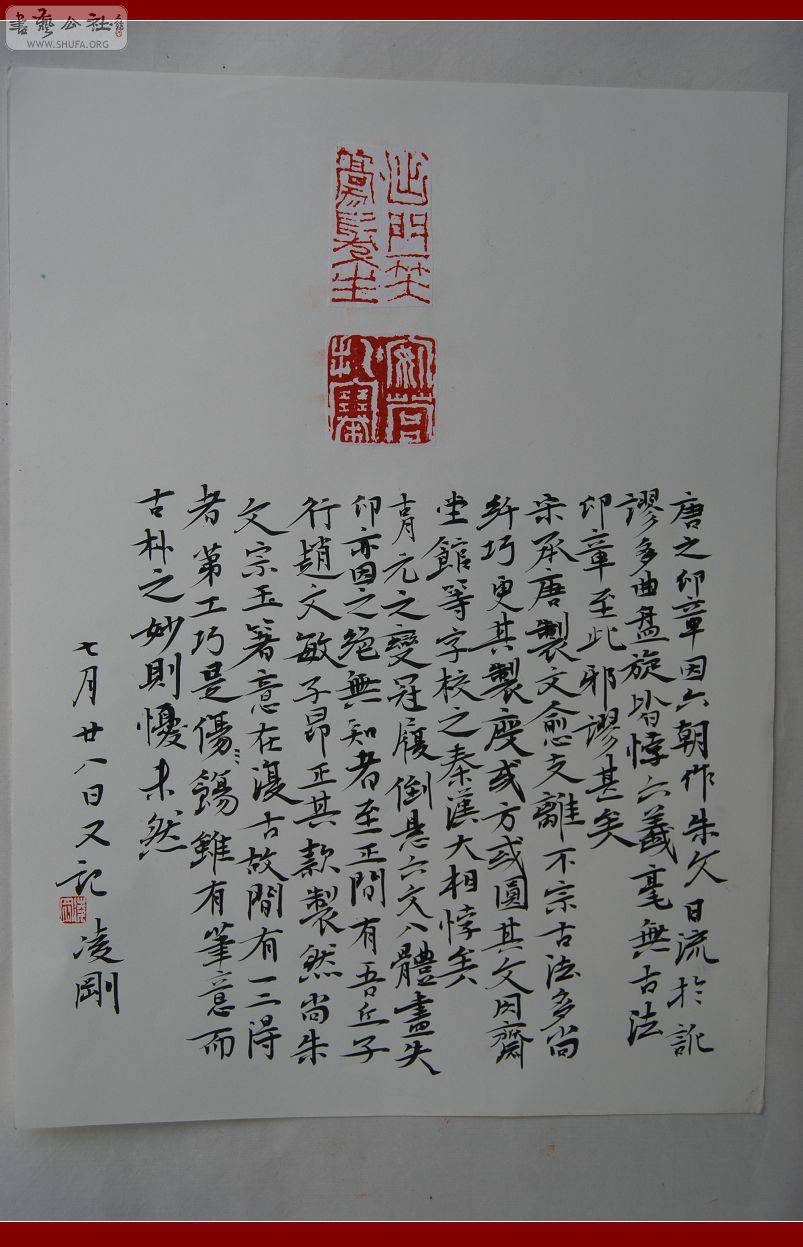 書藝公社
WWW.SHUFA.ORG
唐之印章因六朝作朱文日流於訛
謬多曲盤旋皆悖六義毫無古法
印章至此邪謬甚矣
宋承唐製文愈支離不宗古法多尚
纤巧更其製度或方或圓其文用齋
堂館等字校之秦漢大相悖矣
肓元之變冠履倒悬六文八體盡失
印亦因之絕無知者至正間有吾丘子
行趙文敏子昂正其款製然尚朱
文宗玉箸意在復古故間有一二得
者第工巧是傷雖有筆意而
古朴之妙則懮未然
七月廿八日又記
凌剛